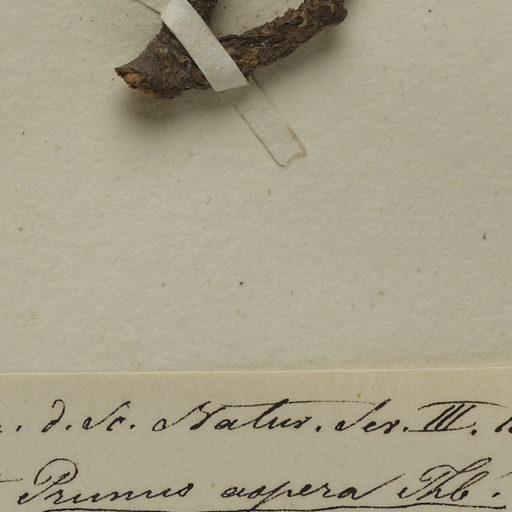 d. Sc. Natur. Ser. III.
Prunus aspera Thb.